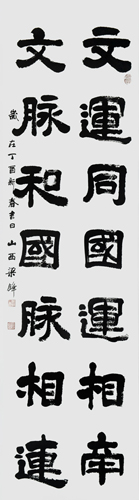 文運同國運相牽
文脈和國脈相連
歲在丁酉新春吉日山西梁